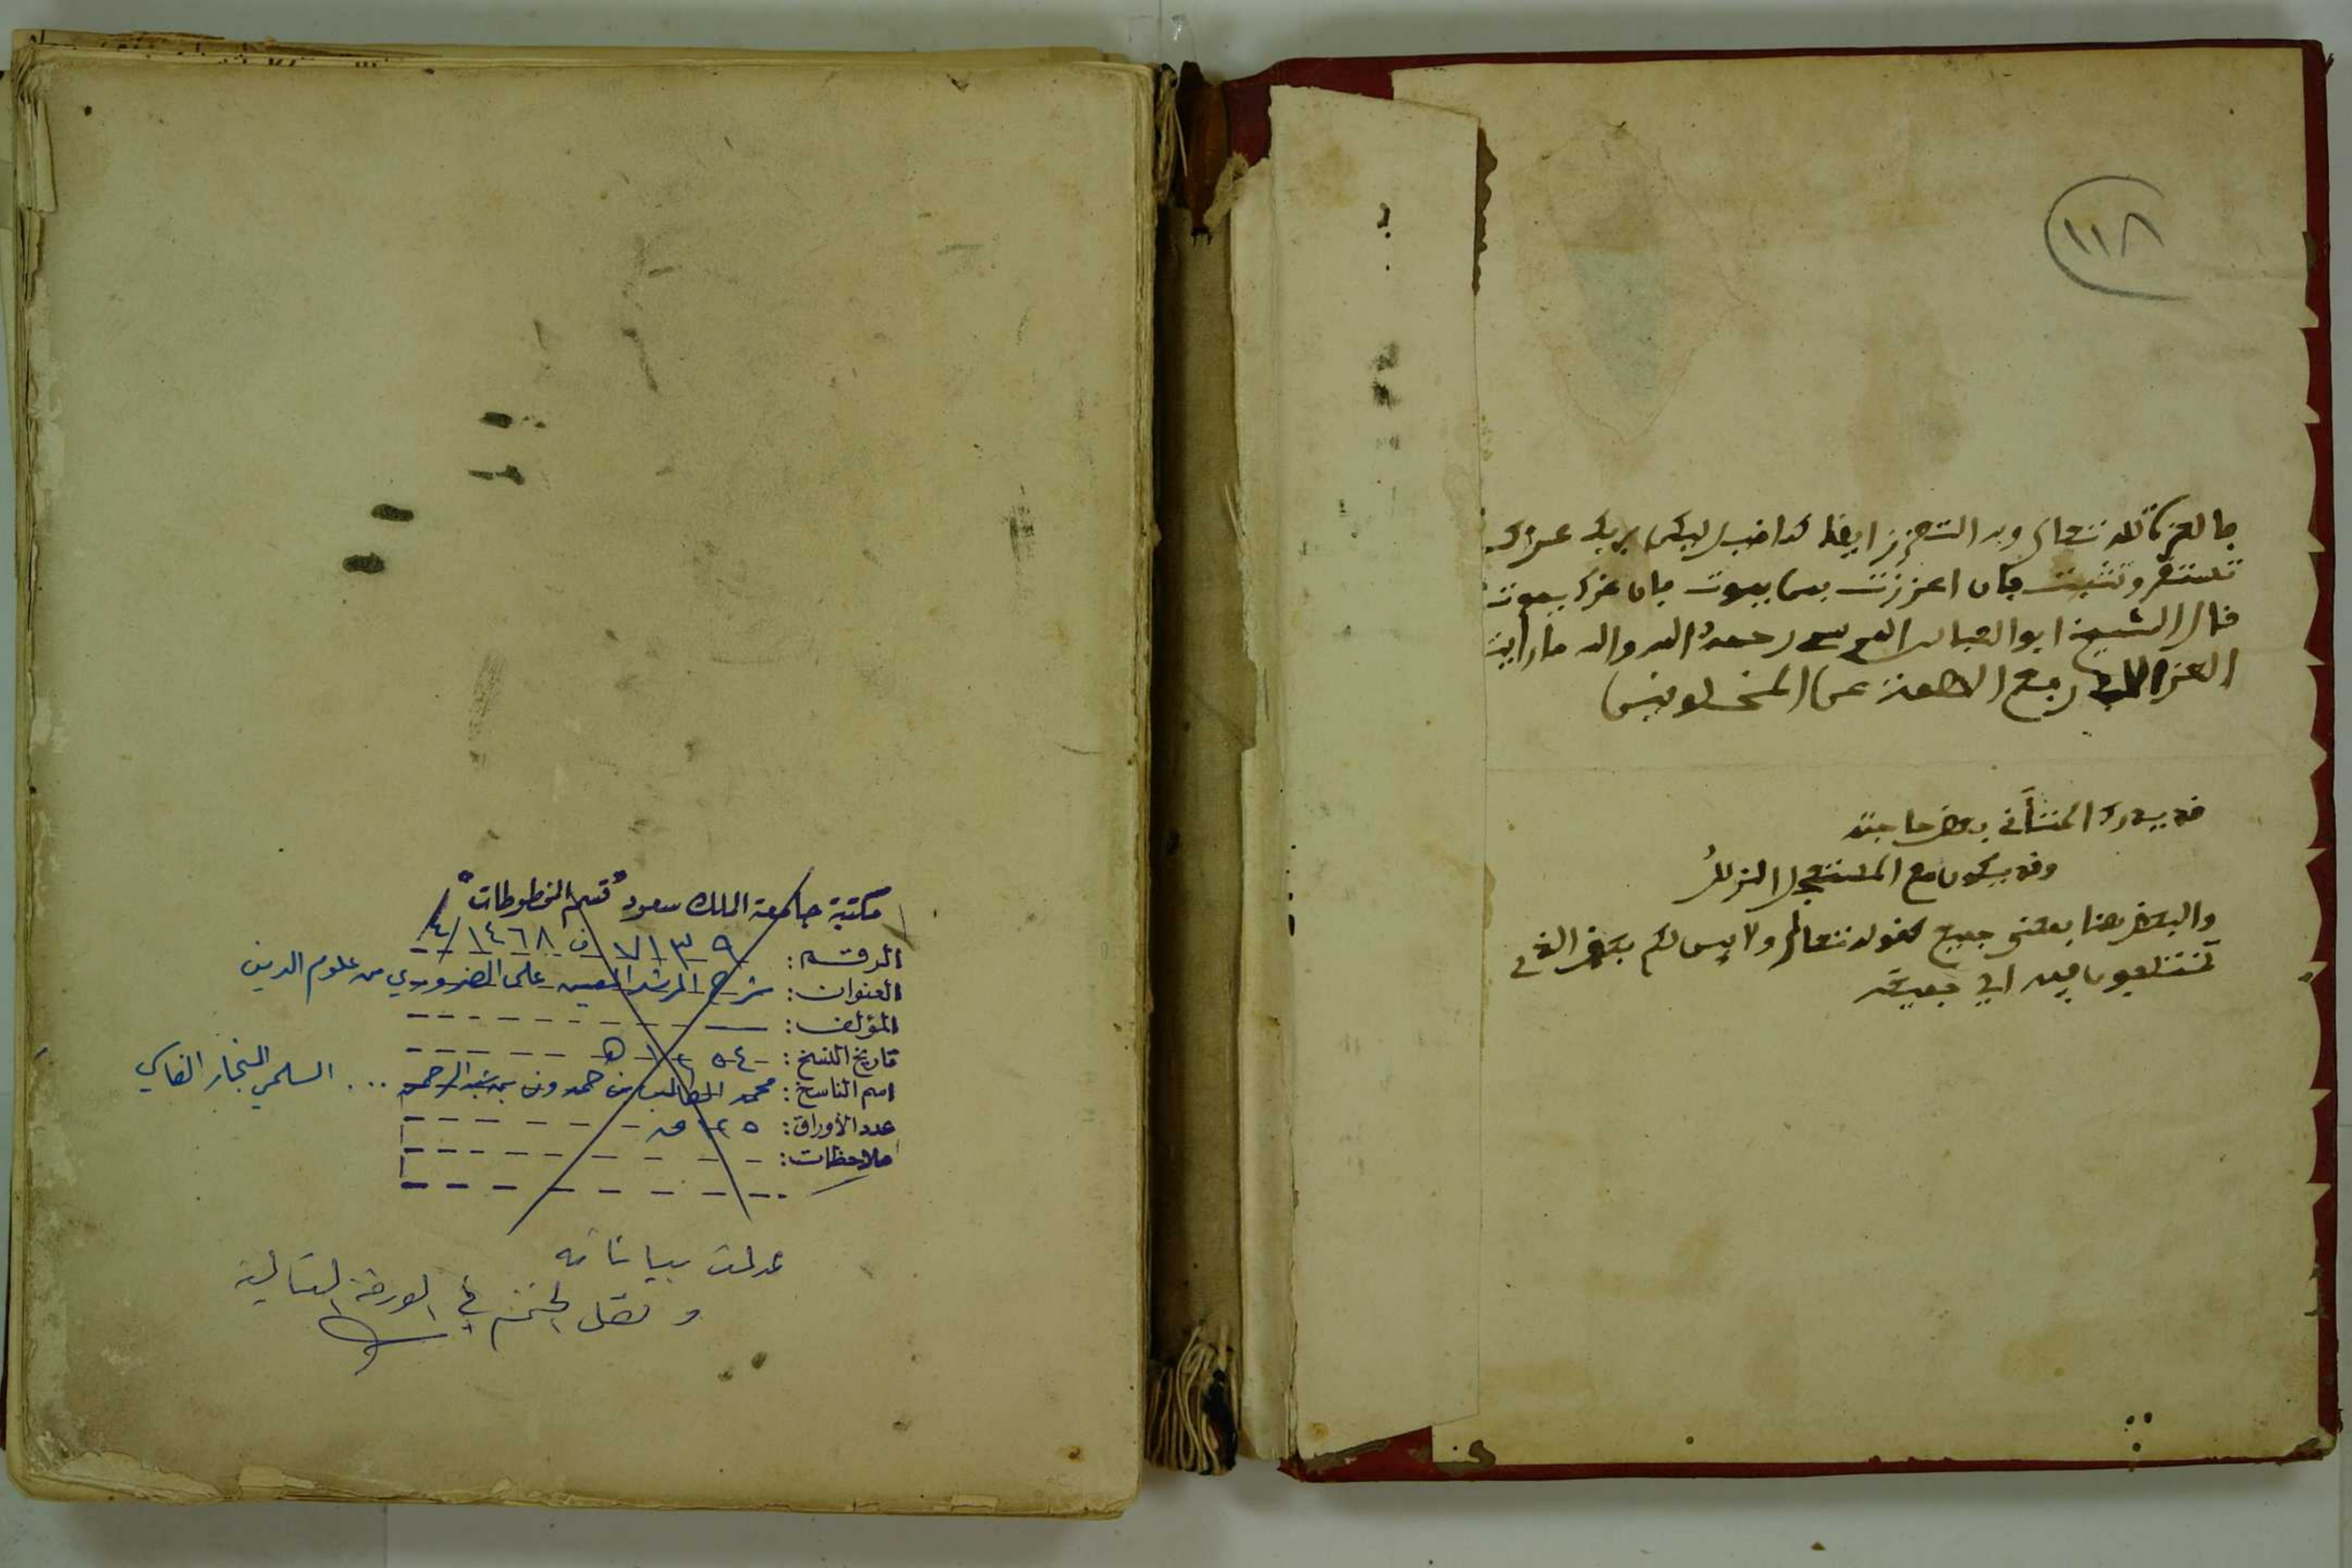 ١١٨
فالعزة لله تعالى وبه التعزز ايضا كما قيل ليكن بربك عزك
تستقر وتثبت فان اعتززت بمن يموت فان عزك يموت
قال الشيخ ابو العباس المرسي رحمه الله والله ما رأيت
العز الا في رفع الهمة عن المخلوقين
قد يدرك المتأني بعض حاجته
وقد يكون مع المستعجل الزلل
والبعض هنا بمعنى جميع كقوله تعالى ولابين لكم بعض الذي
تختلفون فيه اي جميعه
مكتبة جامعة الملك سعود "قسم المخطوطات"
الرقم: ٧١٣٩ ف ١٤٦٨/٤
العنوان: شرح المرشد المعين على الضروري من علوم الدين
المؤلف:
تاريخ النسخ: ١٢٥٤ هـ
اسم الناسخ: محمد الطالب بن حمدون بن عبد الرحمن ... السلمي النجار الفاسي
عدد الأوراق: ١٢٥ ق
ملاحظات:
عدلت بياناته
ونقل الختم في الورقة التالية